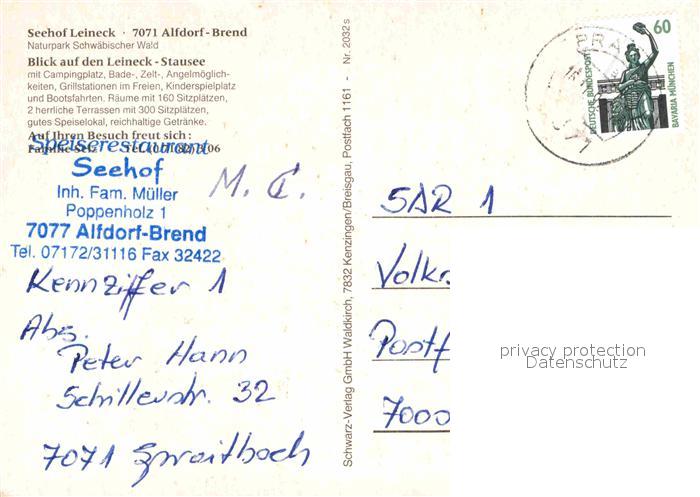 Seehof Leineck · 7071 Alfdorf-Brend
Naturpark Schwäbischer Wald
Blick auf den Leineck-Stausee
mit Campingplatz, Bade-, Zelt-, Angelmöglich-
keiten, Grillstationen im Freien, Kinderspielplatz
und Bootsfahrten. Räume mit 160 Sitzplätzen,
2 herrliche Terrassen mit 300 Sitzplätzen,
gutes Speiselokal, reichhaltige Getränke.
Auf Ihren Besuch freut sich:
Speiserestaurant
Seehof
Inh. Fam. Müller
Poppenholz 1
7077 Alfdorf-Brend
Tel. 07172/31116 Fax 32422
M. C.
Kennziffer 1
Abs.
Peter Hann
Schillerstr. 32
7071 Spraitbach
Schwarz-Verlag GmbH Waldkirch, 7832 Kenzingen/Breisgau, Postfach 1161 - Nr. 2032s
60
DEUTSCHE BUNDESPOST
BAVARIA MÜNCHEN
SAR 1
Volk
Postf
7000
privacy protection
Datenschutz